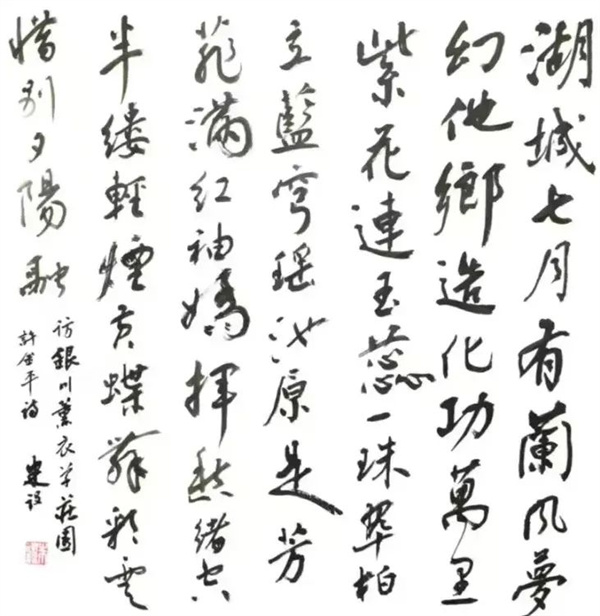 湖城七月有蘭风夢
幻他鄉造化功萬里
紫花連玉蕊一珠翠柏
立藍穹瑶池原是芳
菲滿红袖嬌挥愁緒空
半缕輕煙黄蝶舞彩雲
惜别夕陽融
访銀川薰衣草莊園
許金平诗